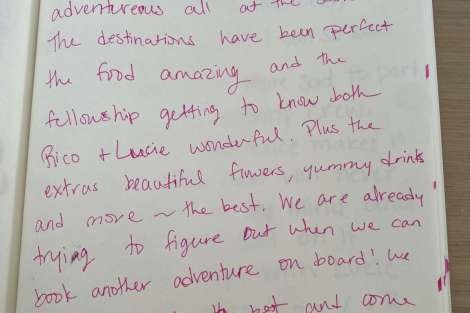 adventureous all at the
The destinations have been perfect
the food amazing and the
fellowship getting to know both
Rico + Luscie wonderful. Plus the
extras beautiful flowers, yummy drinks
and more ~ the best. We are already
trying to figure out when we can
book another adventure on board! We
best and come